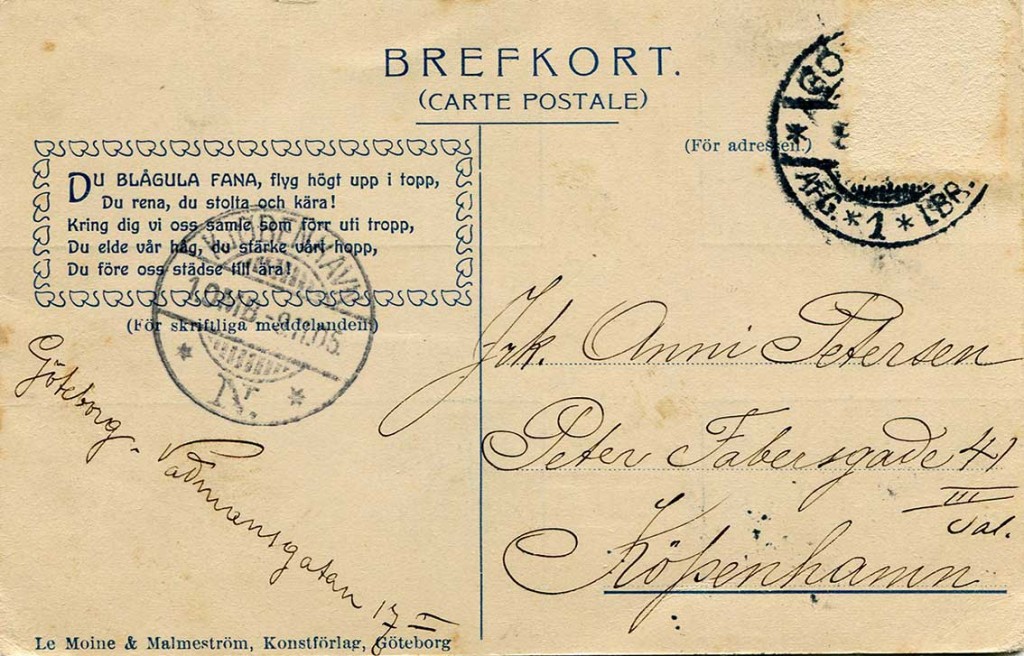 BREFKORT.
(CARTE POSTALE)
(För adressen.)
DU BLÅGULA FANA, flyg högt upp i topp,
Du rena, du stolta och kära!
Kring dig vi oss samle som förr uti tropp,
Du elde vår håg, du stärke vårt hopp,
Du före oss städse till ära!
(För skriftliga meddelanden)
KJØBENHAVN
10MB-9.11.05.
* N. *
GÖ
* AFG. * 1 * LBR.
Göteborg - Vadmansgatan 17 II
Frk. Anni Petersen
Peter Fabersgade 41
III
Sal.
Köpenhamn
Le Moine & Malmeström, Konstförlag, Göteborg